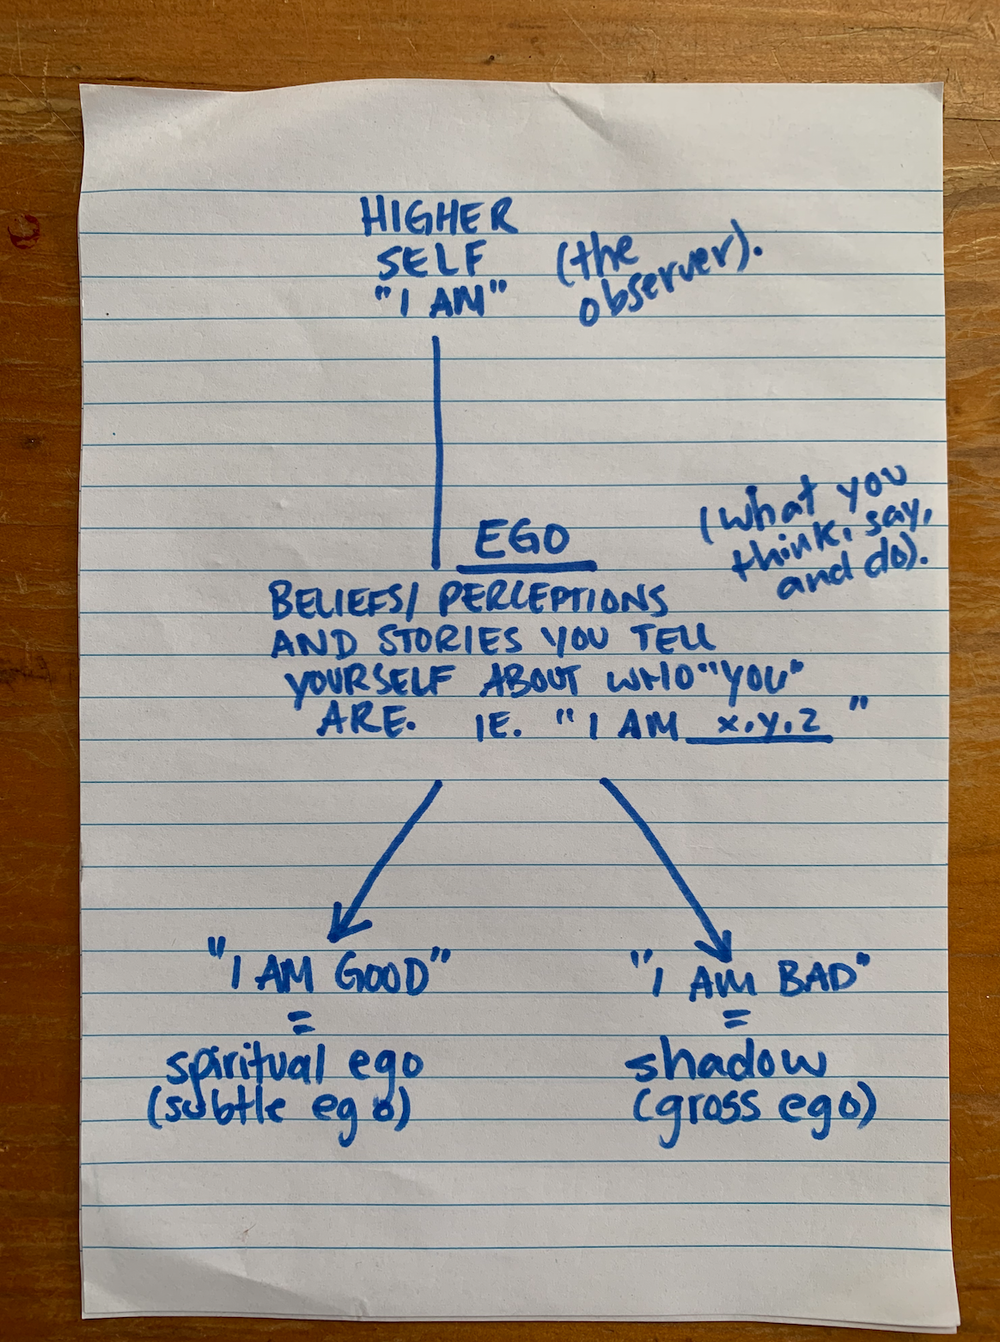 HIGHER
SELF
"I AM"
(the
observer).
EGO
(what you
think, say,
and do).
BELIEFS/ PERCEPTIONS
AND STORIES YOU TELL
YOURSELF ABOUT WHO "YOU"
ARE. IE. "I AM x,y,z"
"I AM GOOD"
=
spiritual ego
(subtle ego)
"I AM BAD"
=
shadow
(gross ego)